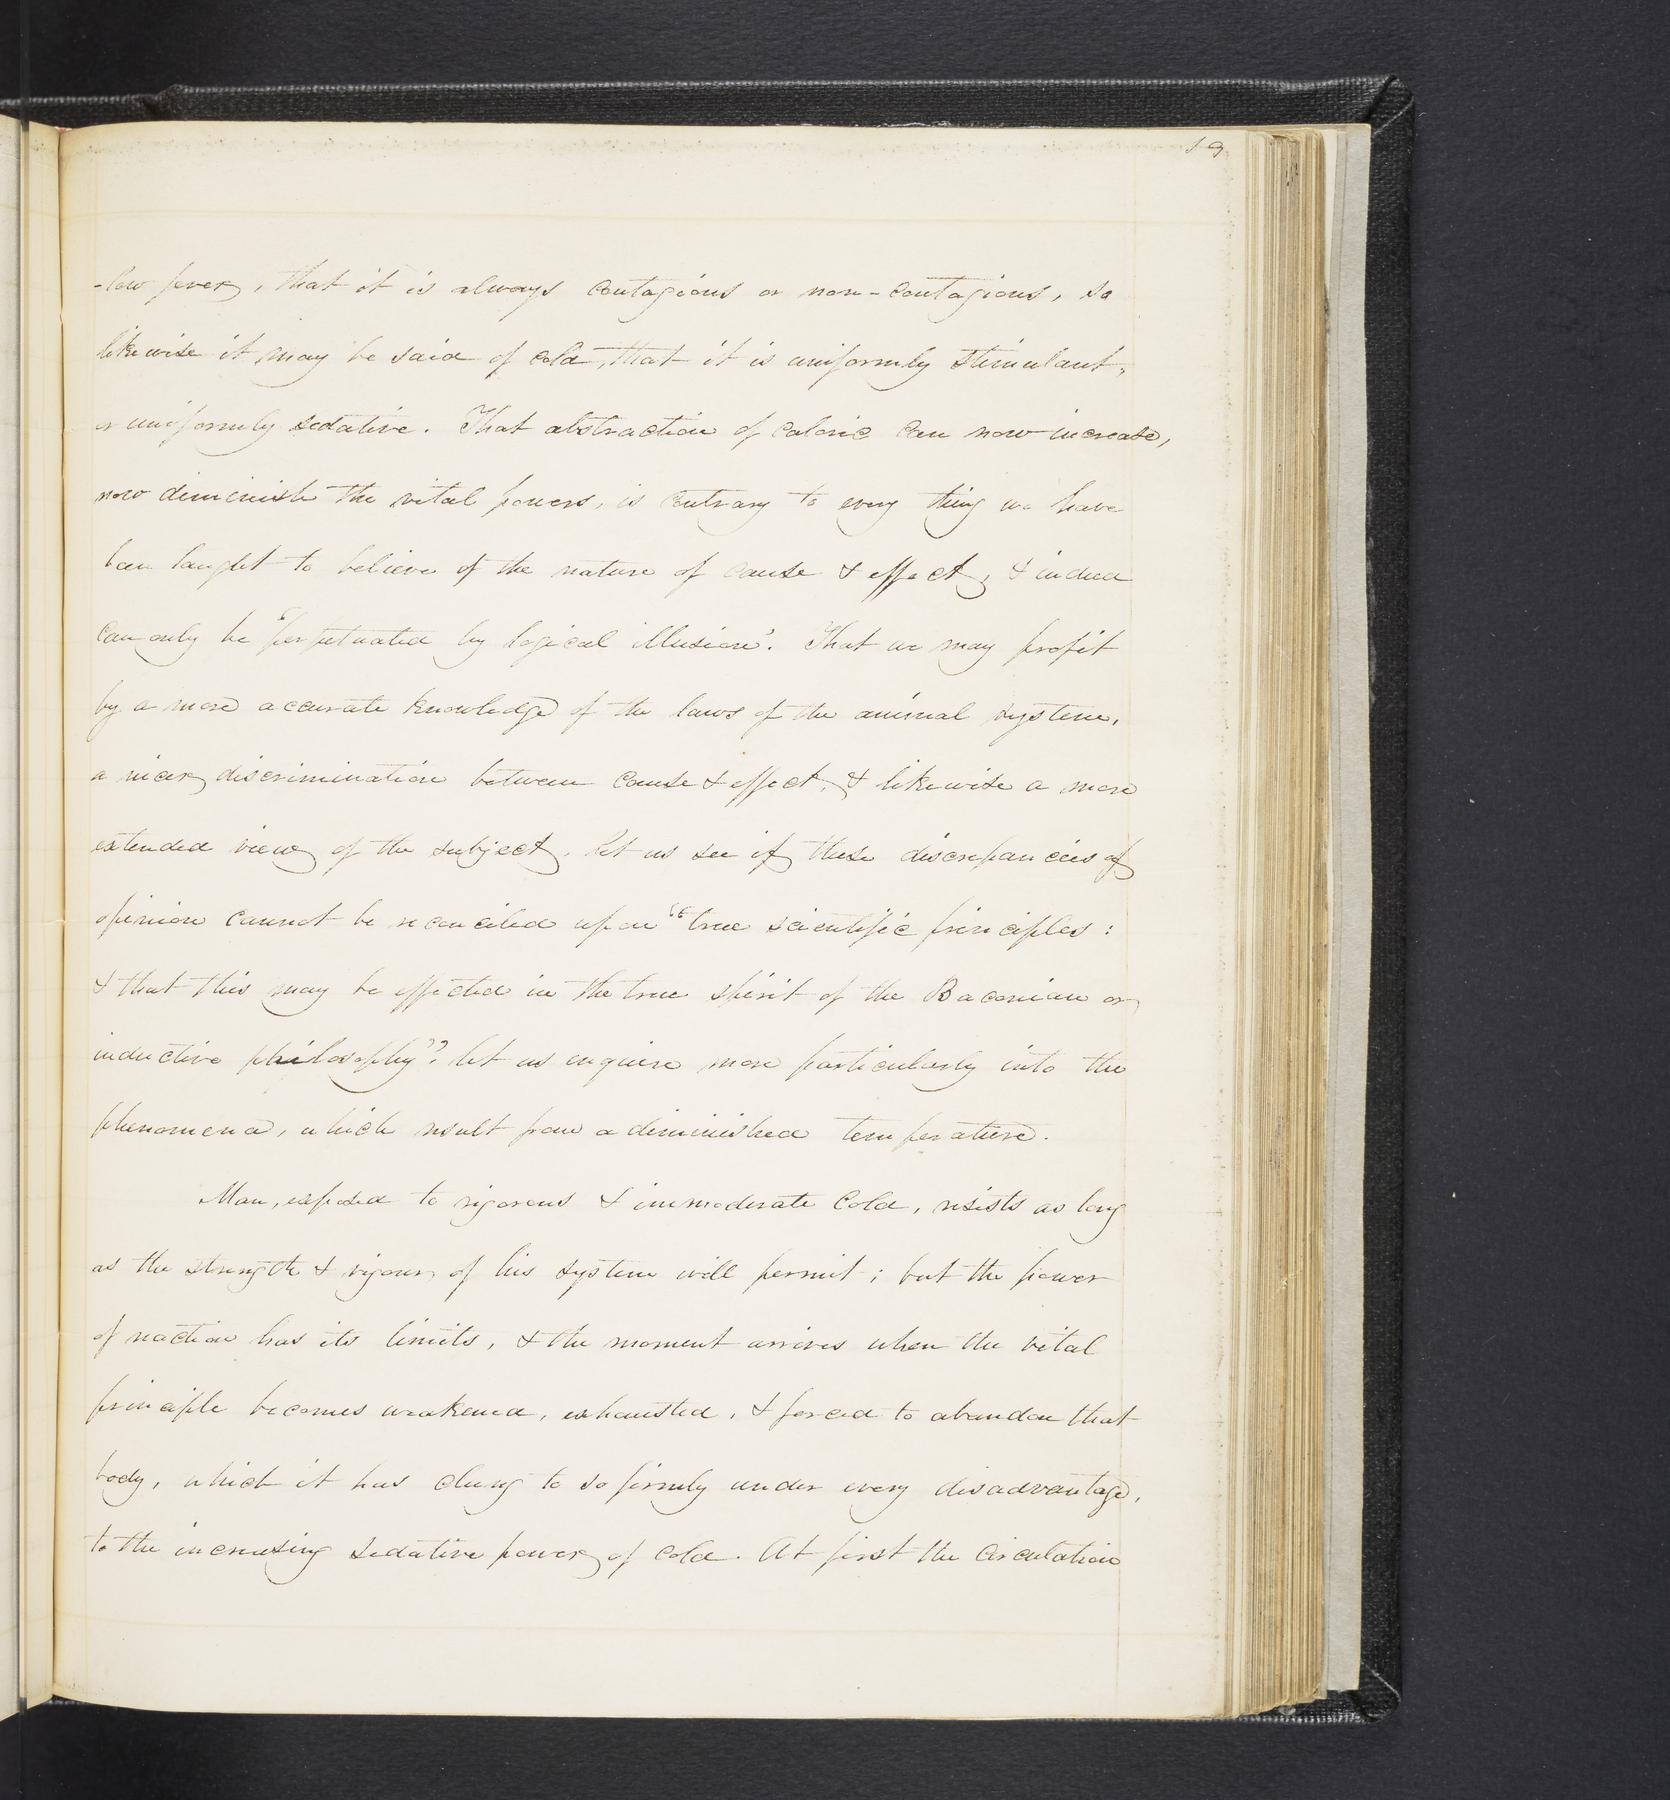 19
-low fever, that it is always contagious or non-contagious, so
likewise it may be said of cold, that it is uniformly stimulant,
or uniformly sedative. That abstraction of caloric can now increase,
now diminish the vital powers, is contrary to every thing we have
been taught to believe of the nature of cause & effect, & indeed
can only be "perpetuated by logical illusion". That we may profit
by a more accurate knowledge of the laws of the animal system,
a nicer discrimination between cause & effect, & likewise a more
extended view of the subject, let us see if these discrepancies of
opinion cannot be reconciled upon "true scientific principles:
& that this may be effected in the true spirit of the Baconian or
inductive philosophy"; let us enquire more particularly into the
phenomena, which result from a diminished temperature.
Man, exposed to rigorous & immoderate cold, resists as long
as the strength & vigour of his system will permit; but the power
of reaction has its limits, & the moment arrives when the vital
principle becomes weakened, exhausted, & forced to abandon that
body, which it has clung to so firmly under every disadvantage,
to the increasing sedative power of cold. At first the circulation